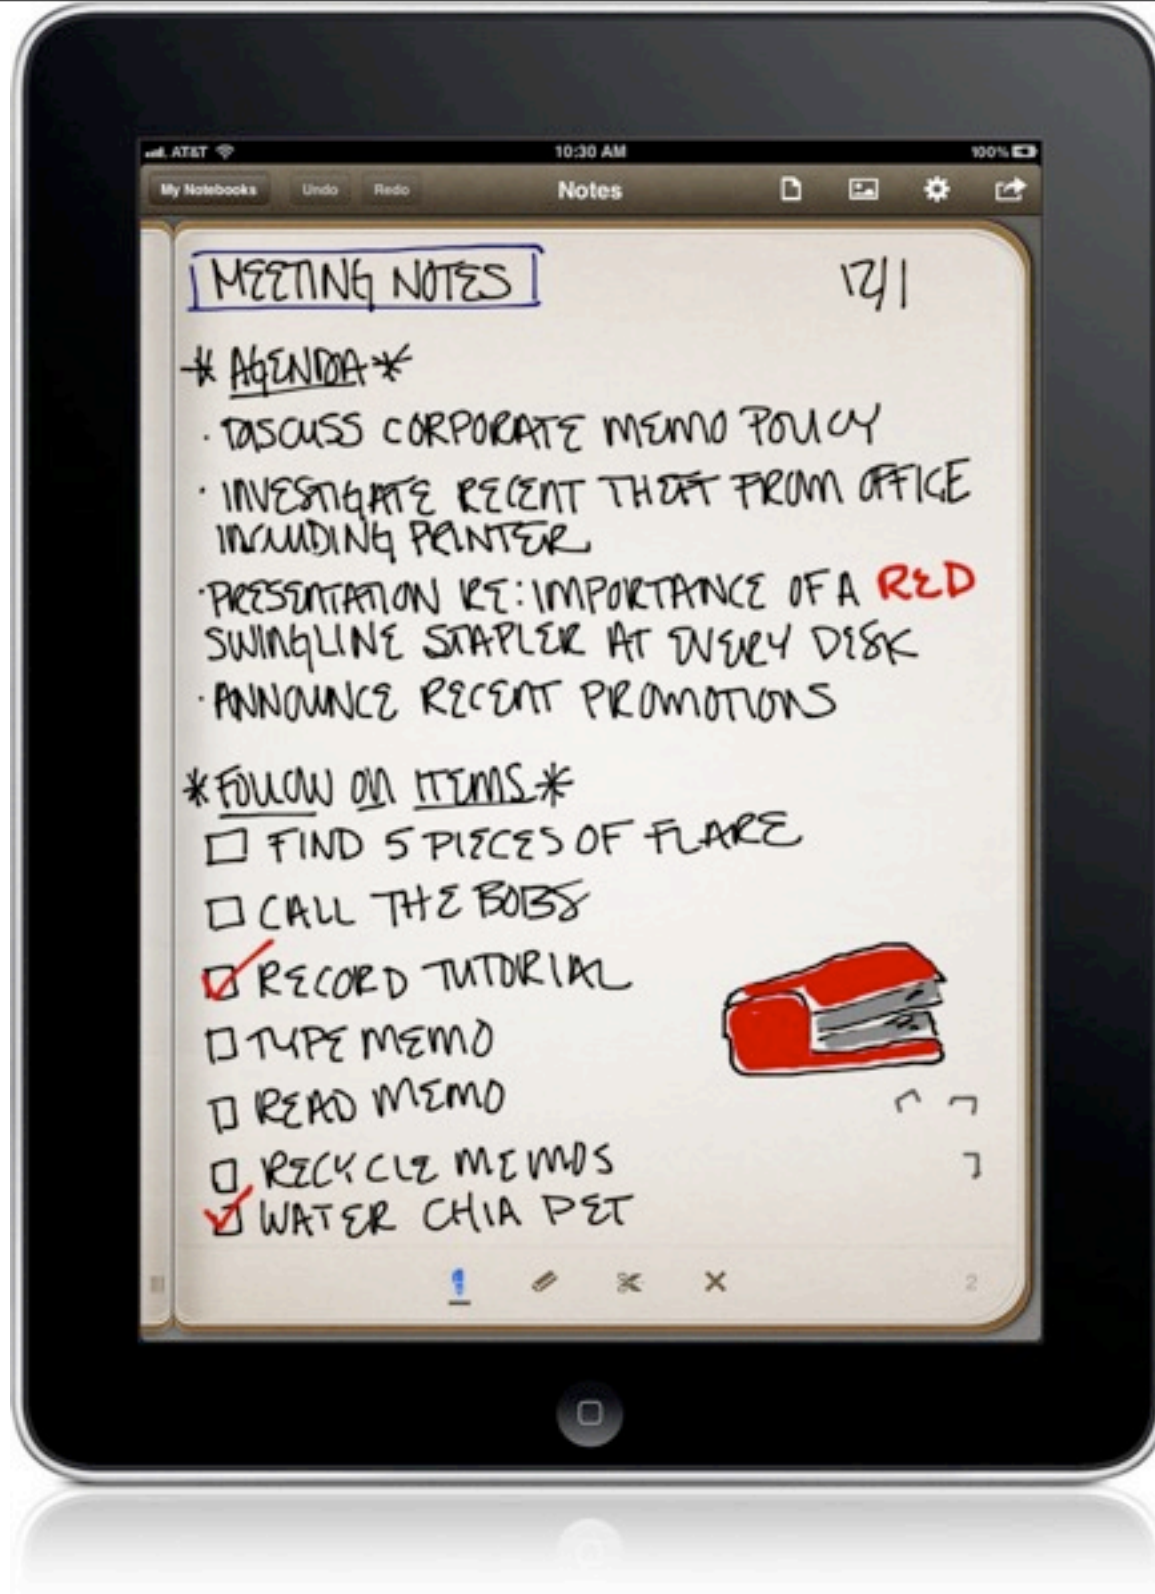 AT&T 10:30 AM 100%
My Notebooks Undo Redo Notes
MEETING NOTES 12/1
* AGENDA *
· DISCUSS CORPORATE MEMO POLICY
· INVESTIGATE RECENT THEFT FROM OFFICE
INCLUDING PRINTER
· PRESENTATION RE: IMPORTANCE OF A RED
SWINGLINE STAPLER AT EVERY DESK
· ANNOUNCE RECENT PROMOTIONS
* FOLLOW ON ITEMS *
☐ FIND 5 PIECES OF FLARE
☐ CALL THE BOBS
☑ RECORD TUTORIAL
☐ TYPE MEMO
☐ READ MEMO
☐ RECYCLE MEMOS
☑ WATER CHIA PET
2